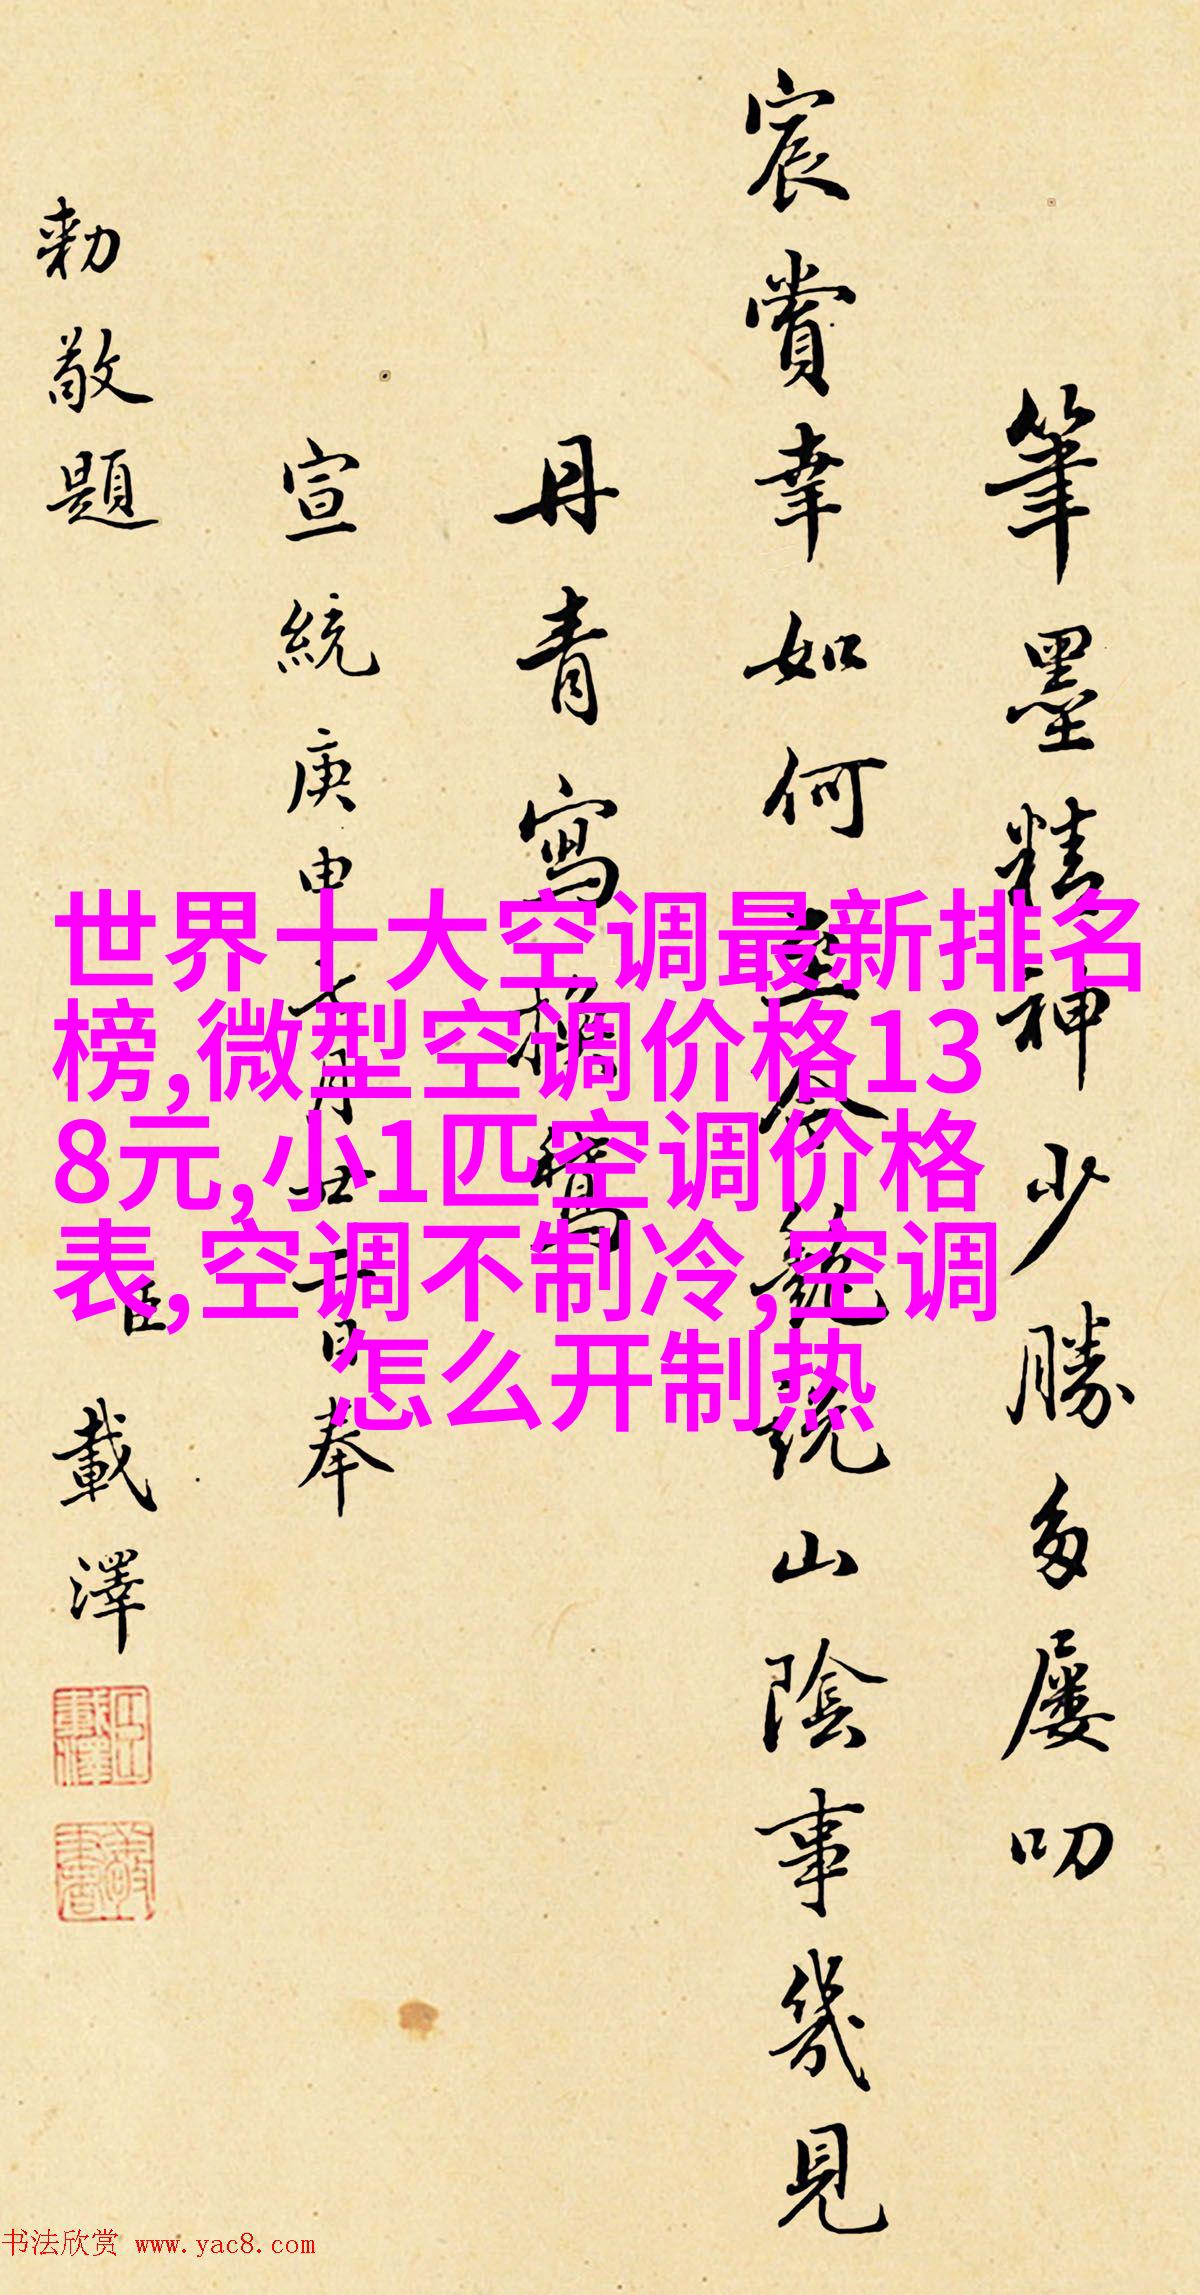 筆墨精神少勝多屢叨
宸賞幸如何今說山陰事幾見
丹青寫換鵝
宣統庚申七月廿日奉
勅敬題
臣載澤
世界十大空调最新排名
榜,微型空调价格13
8元,小1匹空调价格
表,空调不制冷,空调
怎么开制热
书法欣赏 www.yac8.com